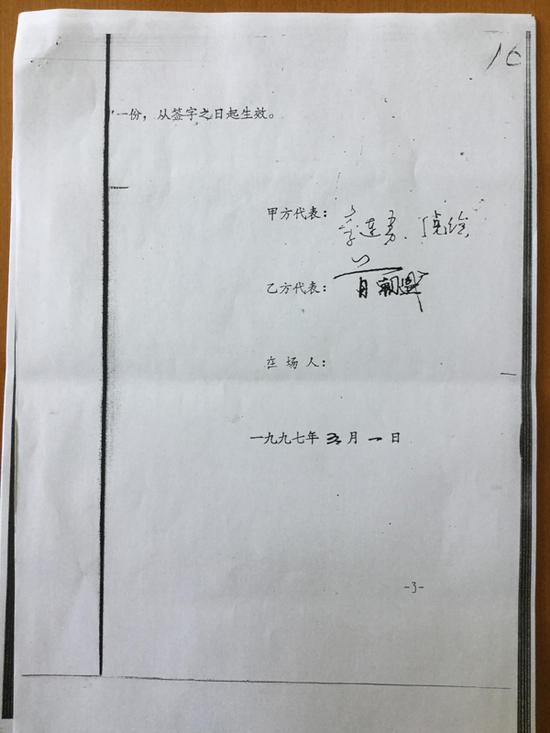 16
一份，从签字之日起生效。
甲方代表：
乙方代表：
在场人：
一九九七年三月一日
-3-